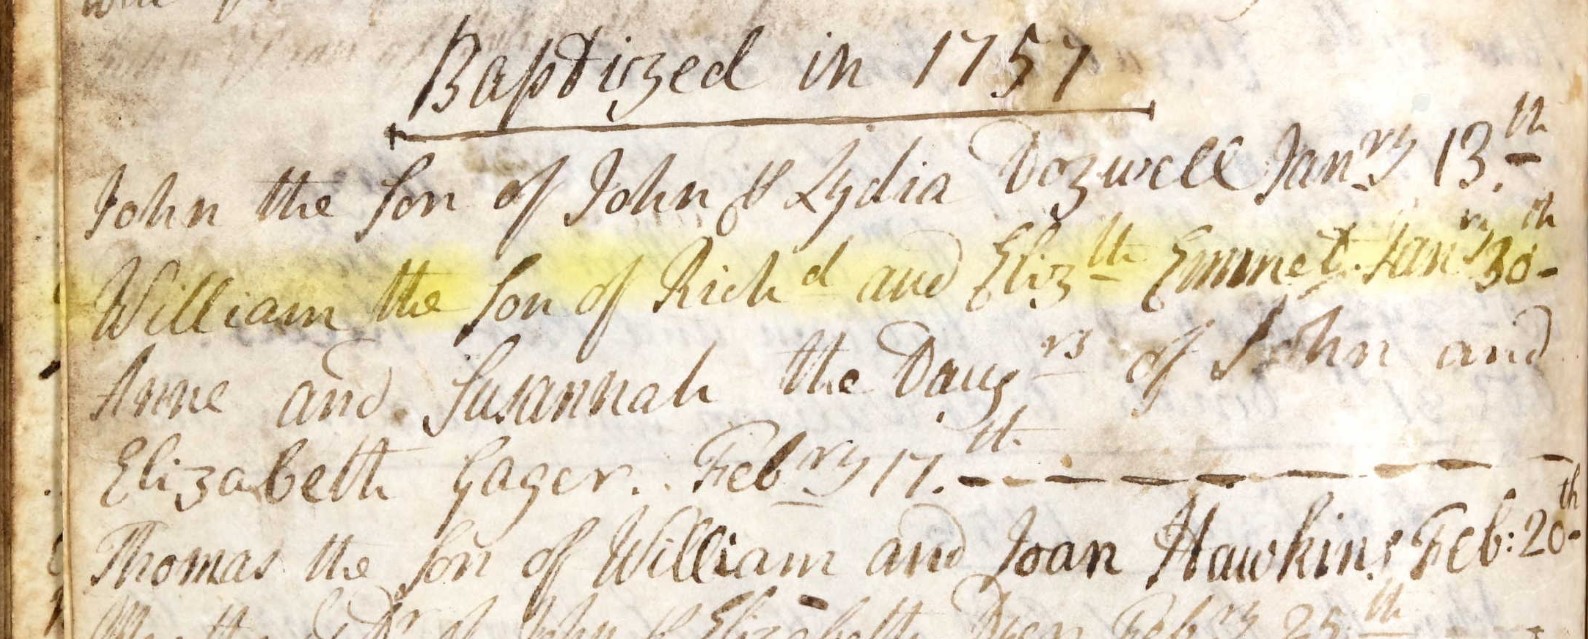 Baptized in 1757
John the Son of John & Lydia Dozwell Janry 13.th
William the Son of Richd and Elizth Emmet Janry 30th
Anne and Susannah the Daugrs of John and
Elizabeth Gager. Febry 17.th
Thomas the Son of William and Joan Hawkins Feb: 20th
of John & Elizabeth Febry 25th